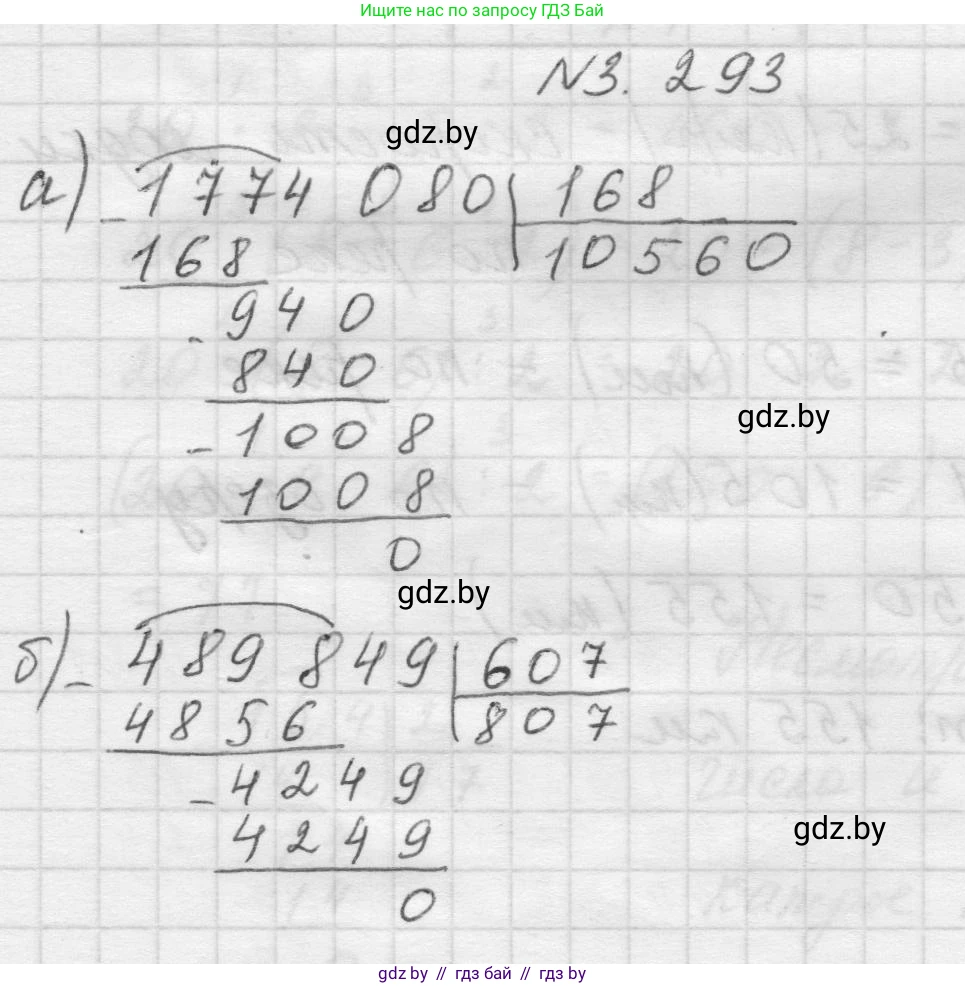 Ищите нас по запросу ГДЗ Бай
№3. 293
gdz.by
а) - 1774 080 | 168
168 10560
- 940
840
gdz.by
- 1008
1008
0
gdz.by
б) - 489 849 | 607
4856 807
- 4249
4249
gdz.by
0
gdz.by // гдз бай // гдз by